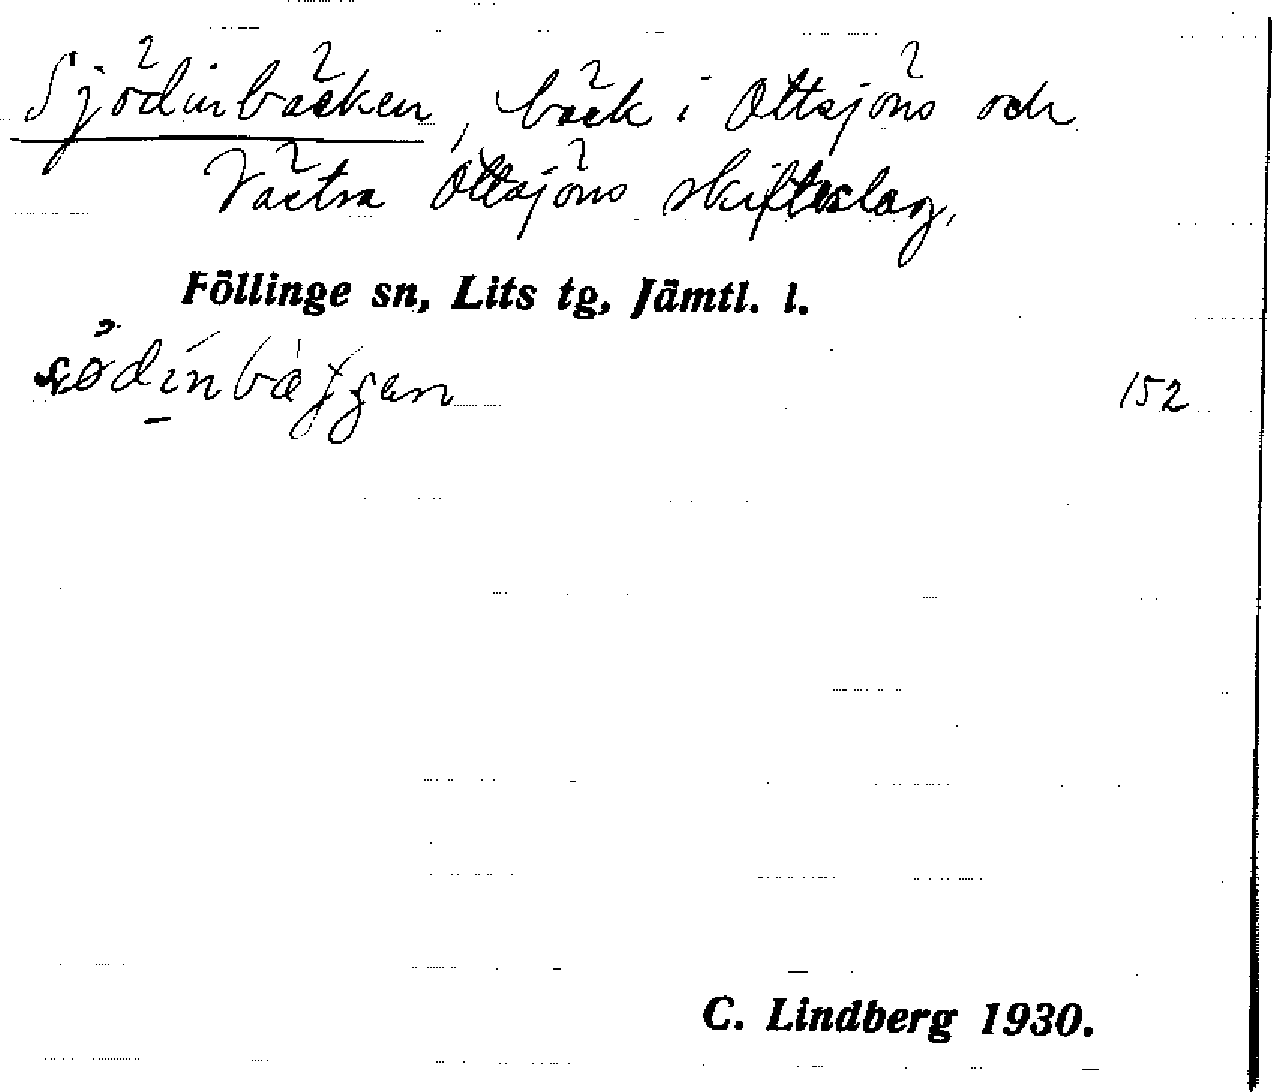 Sjödinbäcken, bäck i Ottsjöns och
Västra Ottsjöns skifteslag,
Föllinge sn, Lits tg, Jämtl. l.
152
C. Lindberg 1930.